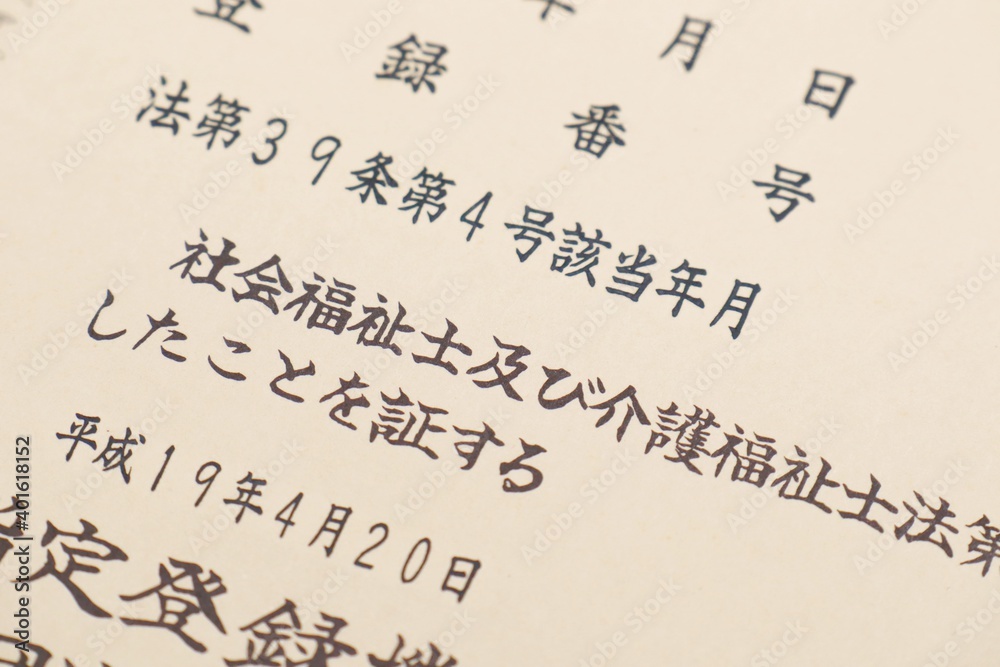 年月日
登録番号
法第39条第4号該当年月
社会福祉士及び介護福祉士法第
したことを証する
平成19年4月20日
定登録機
Adobe Stock | #401618152